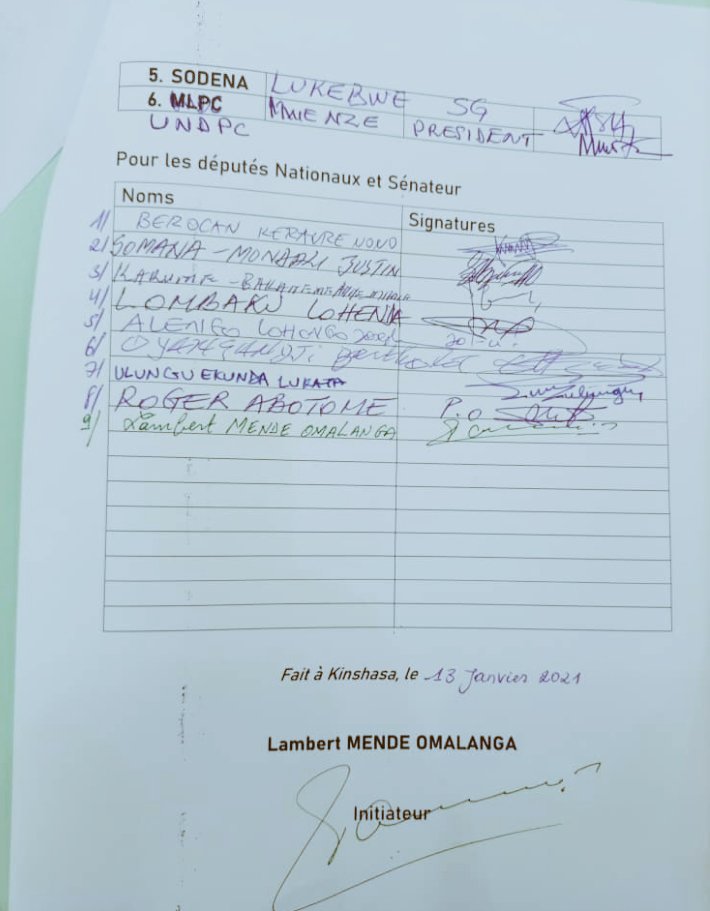 5. SODENA LUKEBWE SG
6. MLPC MWENZE PRESIDENT
UNDPC
Pour les députés Nationaux et Sénateur
Noms Signatures
1/ BEROCAN KERAURE NONO
2/ SOMANA - JUSTIN
3/ KARUME -
4/ LOMBAKU LOHENDA
5/ LOHONGO
6/
7/ ULUNGU EKUNDA LUKATA
8/ ROGER ABOTOME P.O
9/ Lambert MENDE OMALANGA
Fait à Kinshasa, le 13 Janvier 2021
Lambert MENDE OMALANGA
Initiateur